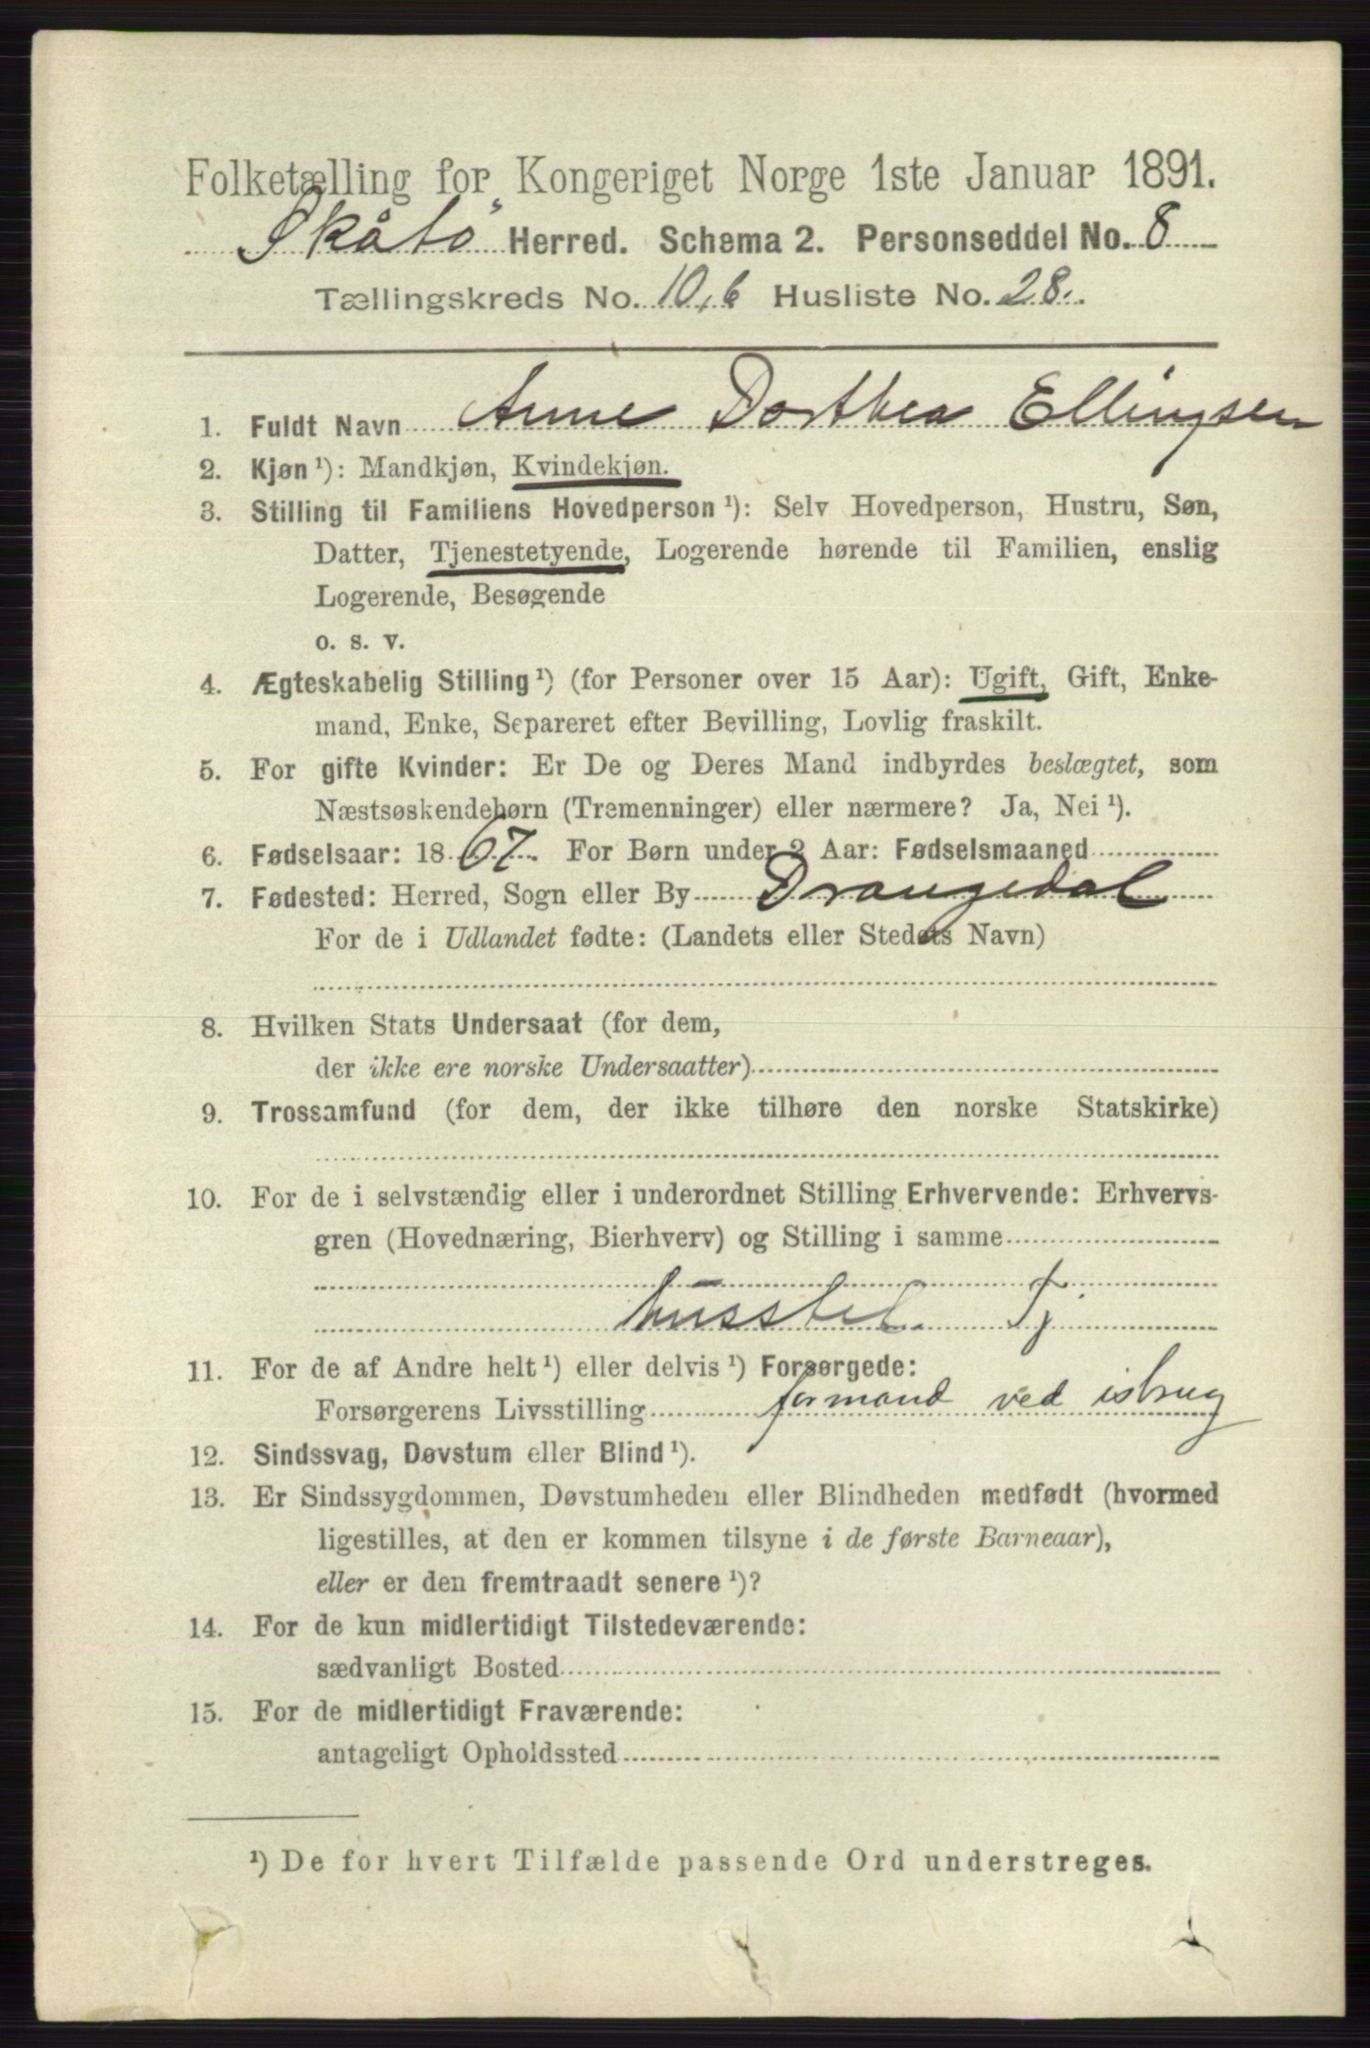 Folketælling for Kongeriget Norge 1ste Januar 1891.
Skåtö Herred. Schema 2. Personseddel No. 8
Tællingskreds No. 10,6 Husliste No. 28.
1. Fuldt Navn Anne Dorthea Ellingsen
2. Kjøn ¹): Mandkjøn, Kvindekjøn.
3. Stilling til Familiens Hovedperson ¹): Selv Hovedperson, Hustru, Søn,
Datter, Tjenestetyende, Logerende hørende til Familien, enslig
Logerende, Besøgende
o. s. v.
4. Ægteskabelig Stilling ¹) (for Personer over 15 Aar): Ugift, Gift, Enke-
mand, Enke, Separeret efter Bevilling, Lovlig fraskilt.
5. For gifte Kvinder: Er De og Deres Mand indbyrdes beslægtet, som
Næstsøskendebørn (Tremenninger) eller nærmere? Ja, Nei ¹).
6. Fødselsaar: 1867. For Børn under 2 Aar: Fødselsmaaned
7. Fødested: Herred, Sogn eller By Drangedal
For de i Udlandet fødte: (Landets eller Stedets Navn)
8. Hvilken Stats Undersaat (for dem,
der ikke ere norske Undersaatter)
9. Trossamfund (for dem, der ikke tilhøre den norske Statskirke)
10. For de i selvstændig eller i underordnet Stilling Erhvervende: Erhvervs-
gren (Hovednæring, Bierhverv) og Stilling i samme
husstel. Tj
11. For de af Andre helt ¹) eller delvis ¹) Forsørgede:
Forsørgerens Livsstilling formand ved isbrug
12. Sindssvag, Døvstum eller Blind ¹).
13. Er Sindssygdommen, Døvstumheden eller Blindheden medfødt (hvormed
ligestilles, at den er kommen tilsyne i de første Barneaar),
eller er den fremtraadt senere ¹)?
14. For de kun midlertidigt Tilstedeværende:
sædvanligt Bosted
15. For de midlertidigt Fraværende:
antageligt Opholdssted
¹) De for hvert Tilfælde passende Ord understreges.